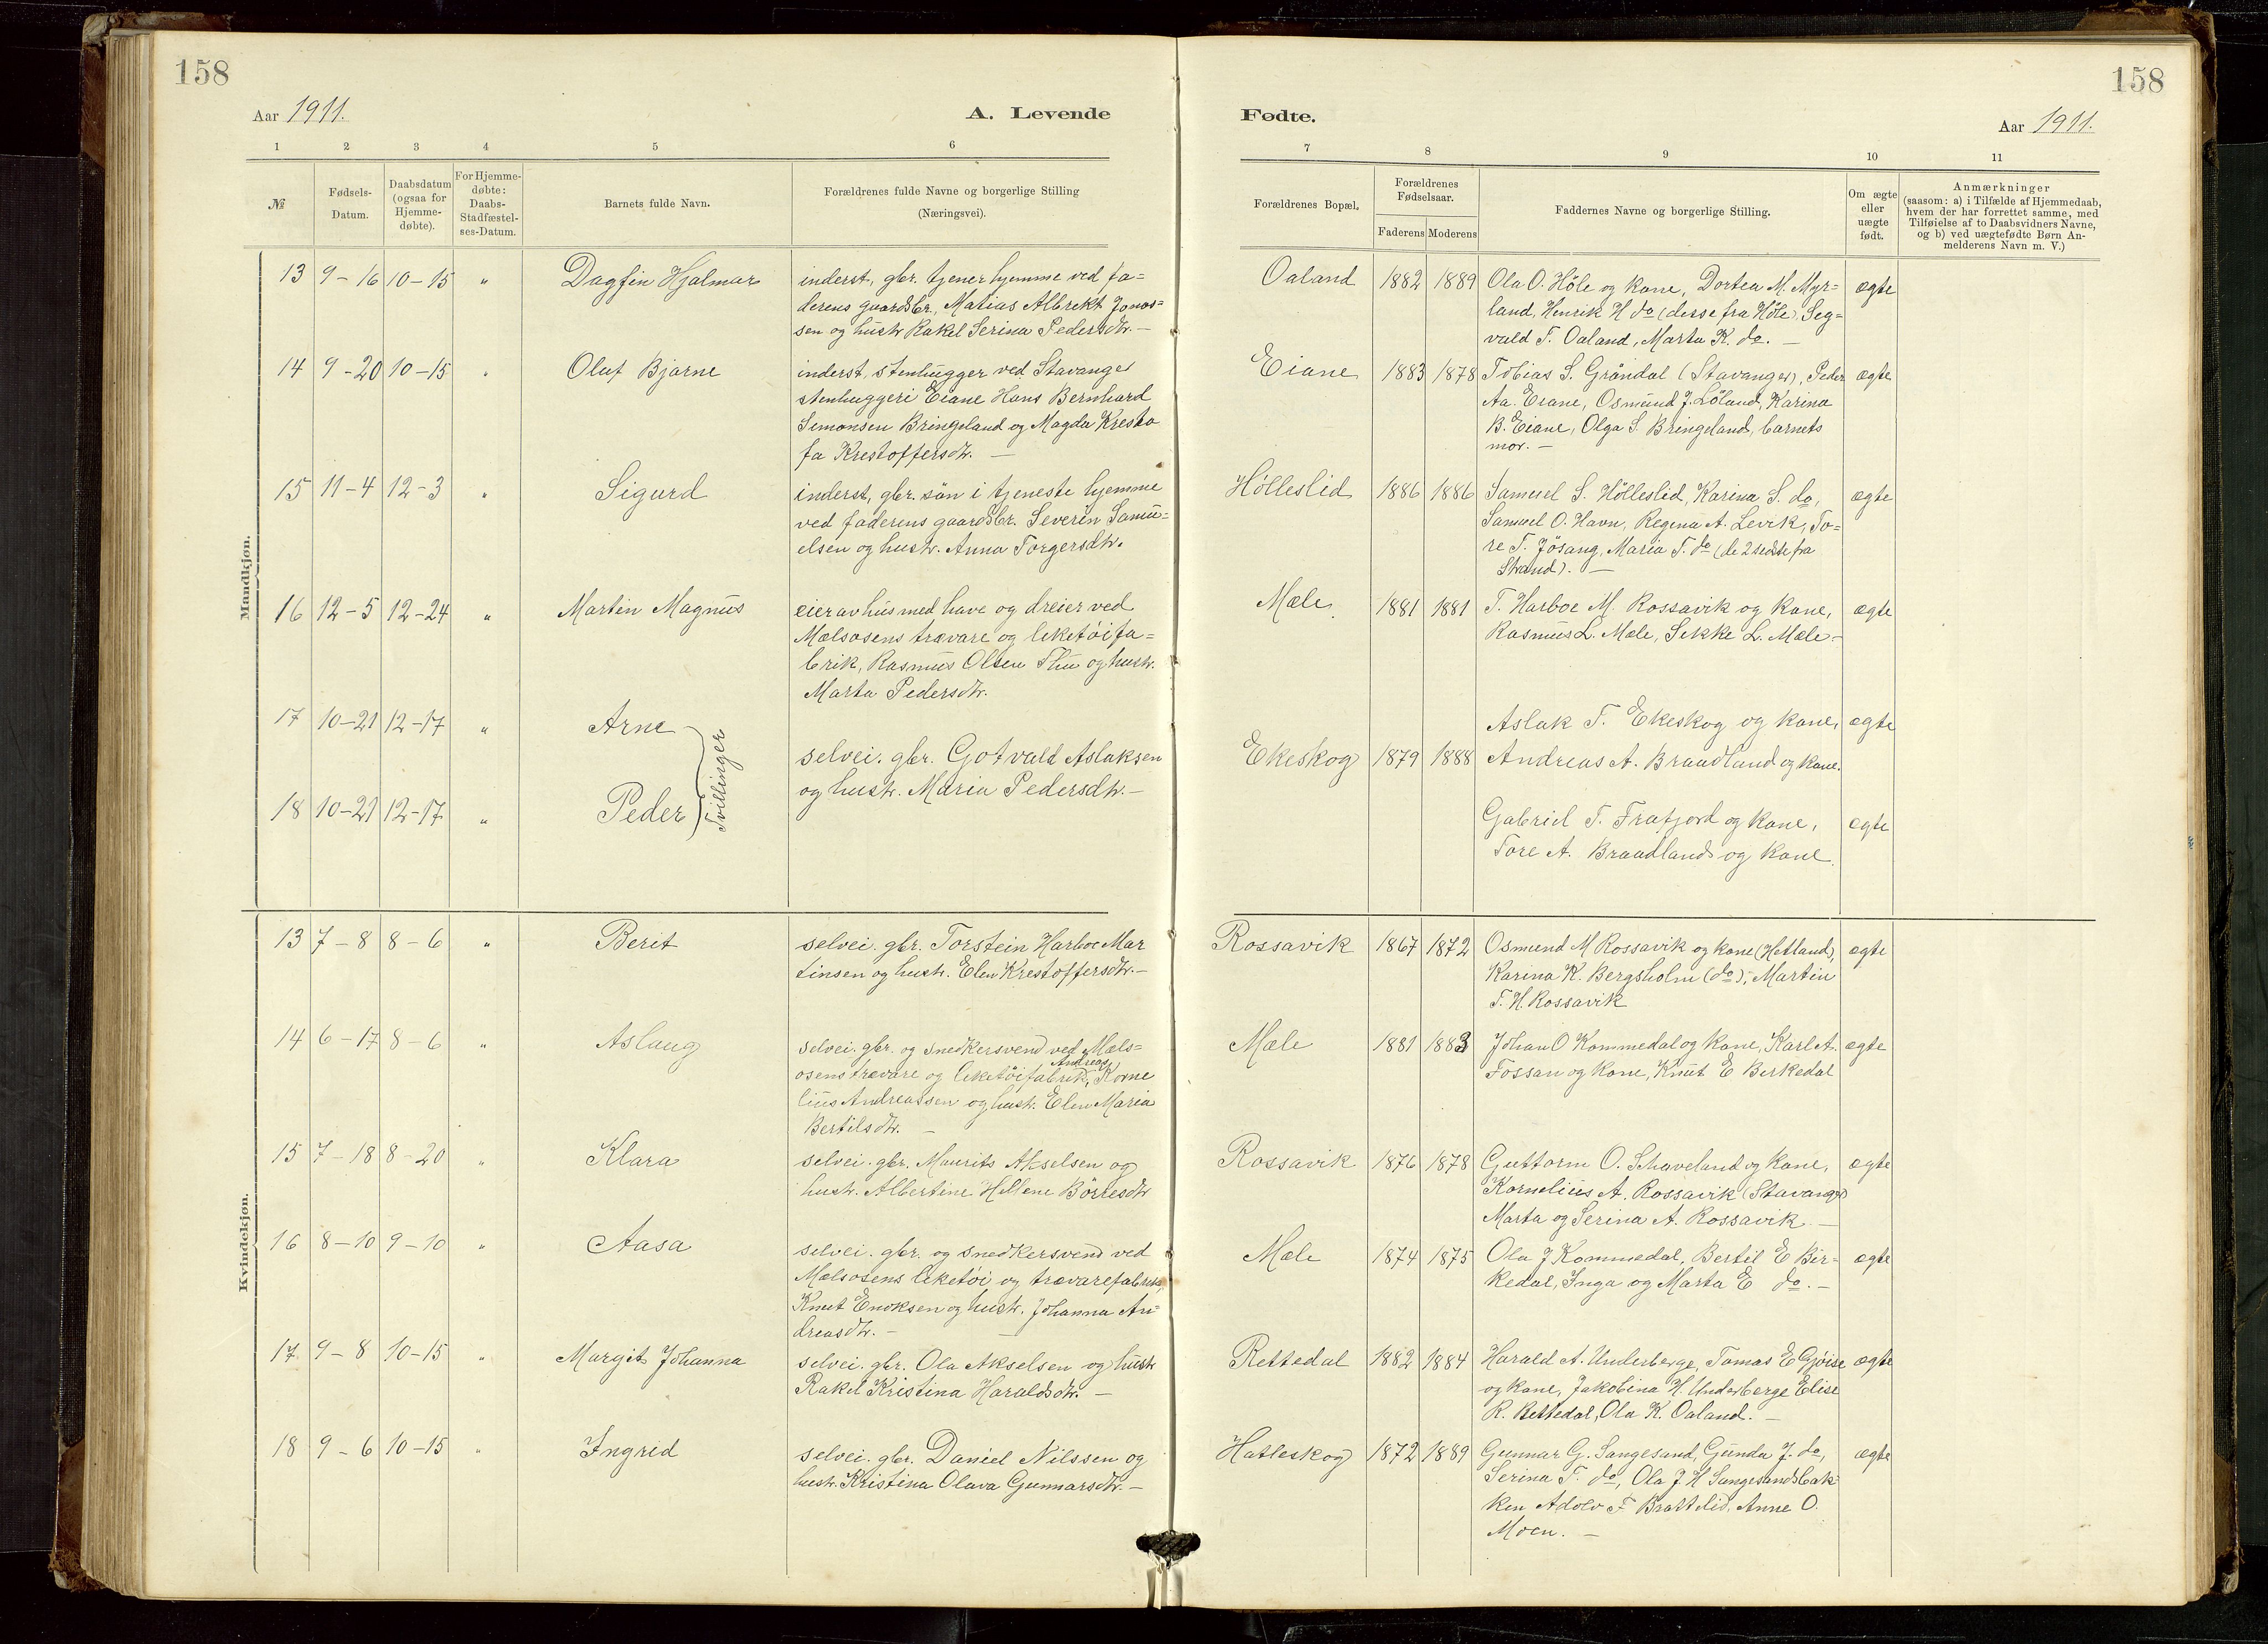 158
158
Aar 1911.
A. Levende
Fødte.
Aar 1911.
1 2 3 4 5 6 7 8 9 10 11
№ Fødsels-Datum. Daabsdatum (ogsaa for Hjemme-døbte). For Hjemme-døbte: Daabs-Stadfæstel-ses-Datum. Barnets fulde Navn. Forældrenes fulde Navne og borgerlige Stilling (Næringsvei).
Forældrenes Bopæl. Forældrenes Fødselsaar. Faderens Moderens Faddernes Navne og borgerlige Stilling. Om ægte eller uægte født.
Anmærkninger
(saasom: a) i Tilfælde af Hjemmedaab,
hvem der har forrettet samme, med
Tilføielse af to Daabsvidners Navne,
og b) ved uægtefødte Børn An-
melderens Navn m. V.)
Mandkjøn.
13 9-16 10-15 " Dagfin Hjalmar
inderst, gbr. tjener hjemme ved fa-
derens gaardsbr., Matias Albrekt Jonas-
sen og hustr. Rakel Serina Pedersdtr. -
Oaland 1882 1889
Ola O. Höle og kone, Dortea M. Myr-
land, Henrik H do (desse fra Höle), Seg-
vald T. Oaland, Marta K. do. -
ægte
14 9-20 10-15 " Oluf Bjarne
inderst, stenhugger ved Stavanger
stenhuggeri Eiane Hans Bernhard
Simonsen Bringeland og Magda Kresto
fa Krestoffersdtr. -
Eiane 1883 1878
Tobias S. Gröndal (Stavanger), Peder
Aa. Eiane, Osmund J. Löland, Karina
B. Eiane, Olga S. Bringeland, barnets
mor. -
ægte
15 11-4 12-3 " Sigurd
inderst, gbr. sön i tjeneste hjemme
ved faderens gaardsbr. Severin Samu-
elsen og hustr. Anna Torgersdtr.
Hölleslid 1886 1886
Samuel S. Hölleslid, Karina S. do,
Samuel O. Havn, Regina A. Levik, To-
re T. Jösang, Maria T. do (de 2 sidste fra
Strand). -
ægte
16 12-5 12-24 " Martin Magnus
eier av hus med have og dreier ved
Mælsosens trævare og leketöifa-
brik, Rasmus Olsen Thu og hustr.
Marta Pedersdtr.
Mæle 1881 1881
T. Harboe M. Rossavik og kone,
Rasmus L. Mæle, Sekke L. Mæle -
ægte
17 10-21 12-17 " Arne
18 10-21 12-17 " Peder
Tvillinger
selvei. gbr. Gotvald Aslaksen
og hustr. Maria Pedersdtr. -
Ekeskog 1879 1888
Aslak T. Ekeskog og kone,
Andreas A. Braadland og kone.
ægte
Gabriel T. Frafjord og kone,
Tore A. Braadland og kone.
ægte
Kvindekjøn.
13 7-8 8-6 " Berit
selvei. gbr. Torstein Harboe Mar
tinsen og hustr. Elen Krestoffersdtr. -
Rossavik 1867 1872
Osmund M Rossavik og kone (Hetland),
Karina K. Bergsholm (do), Martin
T. H. Rossavik
ægte
14 6-17 8-6 " Aslaug
selvei. gbr. og snedkersvend ved Mæls-
osens trævare og leketöifabrik, Andreas Korne
lius Andreassen og hustr. Elen Maria
Bertilsdtr. -
Mæle 1881 1883
Johan O Kommedal og kone, Karl A.
Fossan og kone, Knut E Berkedal
ægte
15 7-18 8-20 " Klara
selvei. gbr. Maurits Akselsen og
hustr. Albertine Hellene Börresdtr
Rossavik 1876 1878
Guttorm O. Schaveland og kone,
Kornelius A. Rossavik (Stavanger)
Marta og Serina A. Rossavik. -
ægte
16 8-10 9-10 " Aasa
selvei. gbr. og snedkersvend ved
Mælsosens leketöi og trævarefabrik,
Knut Enoksen og hustr. Johanna An-
dreasdtr. -
Mæle 1874 1875
Ola J Kommedal, Bertil E Bir-
kedal, Inga og Marta E do. -
ægte
17 9-8 10-15 " Margit Johanna
selvei. gbr. Ola Akselsen og hustr
Rakel Kristina Haraldsdtr. -
Rettedal 1882 1884
Harald A. Underberge, Tomas E Gjöise
og kone, Jakobina H. Underberge Elise
R. Rettedal, Ola K. Oaland. -
ægte
18 9-6 10-15 " Ingrid
selvei. gbr. Daniel Nilssen og
hustr. Kristina Olava Gunnarsdtr. -
Hatleskog 1872 1889
Gunnar G. Sangesand, Gunda J. do,
Serina T. do, Ola J H Sangesandsbak-
ken Adolv F Brattelid, Anne O.
Moen. -
ægte